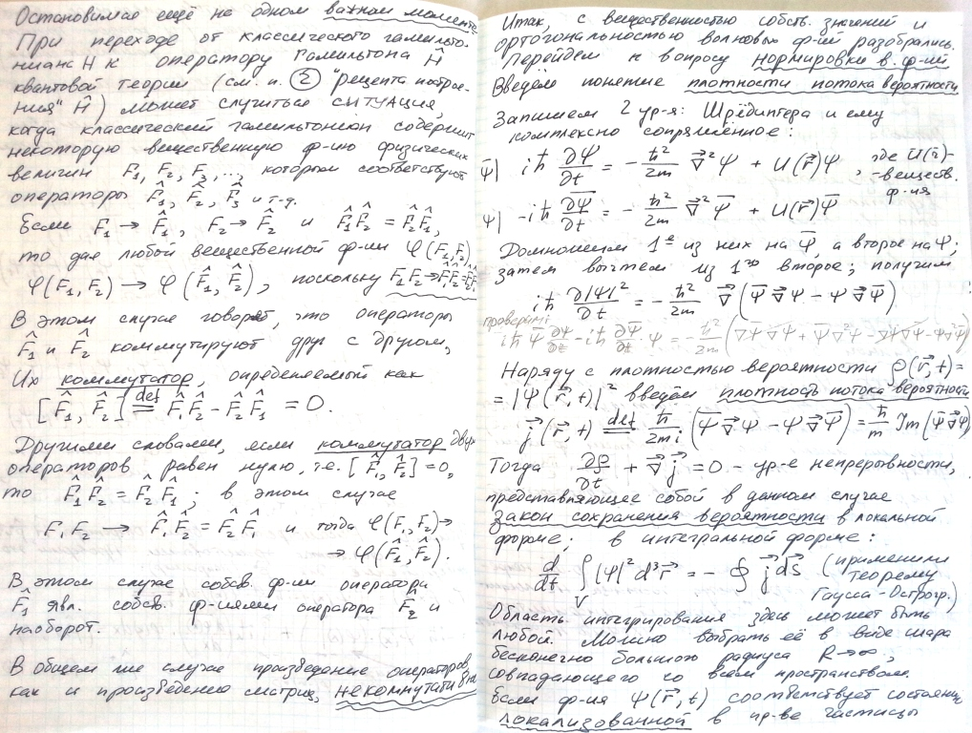 Остановимся ещё на одном важном моменте
При переходе от классического гамильто-
ниана H к оператору Гамильтона Ĥ
квантовой теории (см. п. ② "рецепта построе-
ния" Ĥ) может случиться ситуация,
когда классический гамильтониан содержит
некоторую вещественную ф-ию физических
величин F₁, F₂, F₃, ..., которым соответствуют
операторы F̂₁, F̂₂, F̂₃ и т.д.
Если F₁ → F̂₁, F₂ → F̂₂ и F̂₁F̂₂ = F̂₂F̂₁,
то для любой вещественной ф-ии φ(F₁,F₂)
φ(F₁,F₂) → φ(F̂₁,F̂₂), поскольку F₁F₂→F̂₁F̂₂=F̂₂F̂₁
В этом случае говорят, что операторы
F̂₁ и F̂₂ коммутируют друг с другом,
Их коммутатор, определяемый как
[F̂₁, F̂₂] def= F̂₁F̂₂ - F̂₂F̂₁ = 0.
Другими словами, если коммутатор двух
операторов равен нулю, т.е. [F̂₁,F̂₂]=0,
то F̂₁F̂₂ = F̂₂F̂₁; в этом случае
F₁F₂ → F̂₁F̂₂ = F̂₂F̂₁ и тогда φ(F₁,F₂)→
→ φ(F̂₁,F̂₂).
В этом случае собств. ф-ии оператора
F̂₁ явл. собств. ф-иями оператора F̂₂ и
наоборот.
В общем же случае произведение операторов,
как и произведение матриц, некоммутативно
Итак, с вещественностью собств. значений и
ортогональностью волновых ф-ий разобрались.
Перейдём к вопросу нормировки в. ф-ий
Введём понятие плотности потока вероятности
Запишем 2 ур-я: Шрёдингера и ему
комплексно сопряжённое:
Ψ̄| iħ ∂Ψ/∂t = -ħ²/2m ∇⃗²Ψ + U(r⃗)Ψ, где U(r⃗)-
-веществ.
ф-ия
Ψ| -iħ ∂Ψ̄/∂t = -ħ²/2m ∇⃗²Ψ̄ + U(r⃗)Ψ̄
Домножим 1ᵉ из них на Ψ̄, а второе на Ψ;
затем вычтем из 1ᵍᵒ второе; получим
iħ ∂|Ψ|²/∂t = -ħ²/2m ∇⃗(Ψ̄∇⃗Ψ - Ψ∇⃗Ψ̄)
проверим:
iħ Ψ̄ ∂Ψ/∂t - iħ ∂Ψ̄/∂t Ψ = -ħ²/2m (∇Ψ̄∇Ψ + Ψ̄∇²Ψ - ∇Ψ∇Ψ̄ - Ψ∇²Ψ̄)
Наряду с плотностью вероятности ρ(r⃗,t)=
= |Ψ(r⃗,t)|² введём плотность потока вероятности
j⃗(r⃗,t) def= ħ/2mi (Ψ̄∇⃗Ψ - Ψ∇⃗Ψ̄) = ħ/m Im(Ψ̄∇⃗Ψ)
Тогда ∂ρ/∂t + ∇⃗j⃗ = 0 - ур-е непрерывности,
представляющее собой в данном случае
закон сохранения вероятности в локальной
форме; в интегральной форме:
d/dt ∫_V |Ψ|² d³r⃗ = - ∮ j⃗ dS⃗ (применили
теорему
Гаусса-Остогр.)
Область интегрирования здесь может быть
любой. Можно выбрать её в виде шара
бесконечно большого радиуса R→∞,
совпадающего со всем пространством.
Если ф-ия Ψ(r⃗,t) соответствует состоянию
локализованной в пр-ве частицы